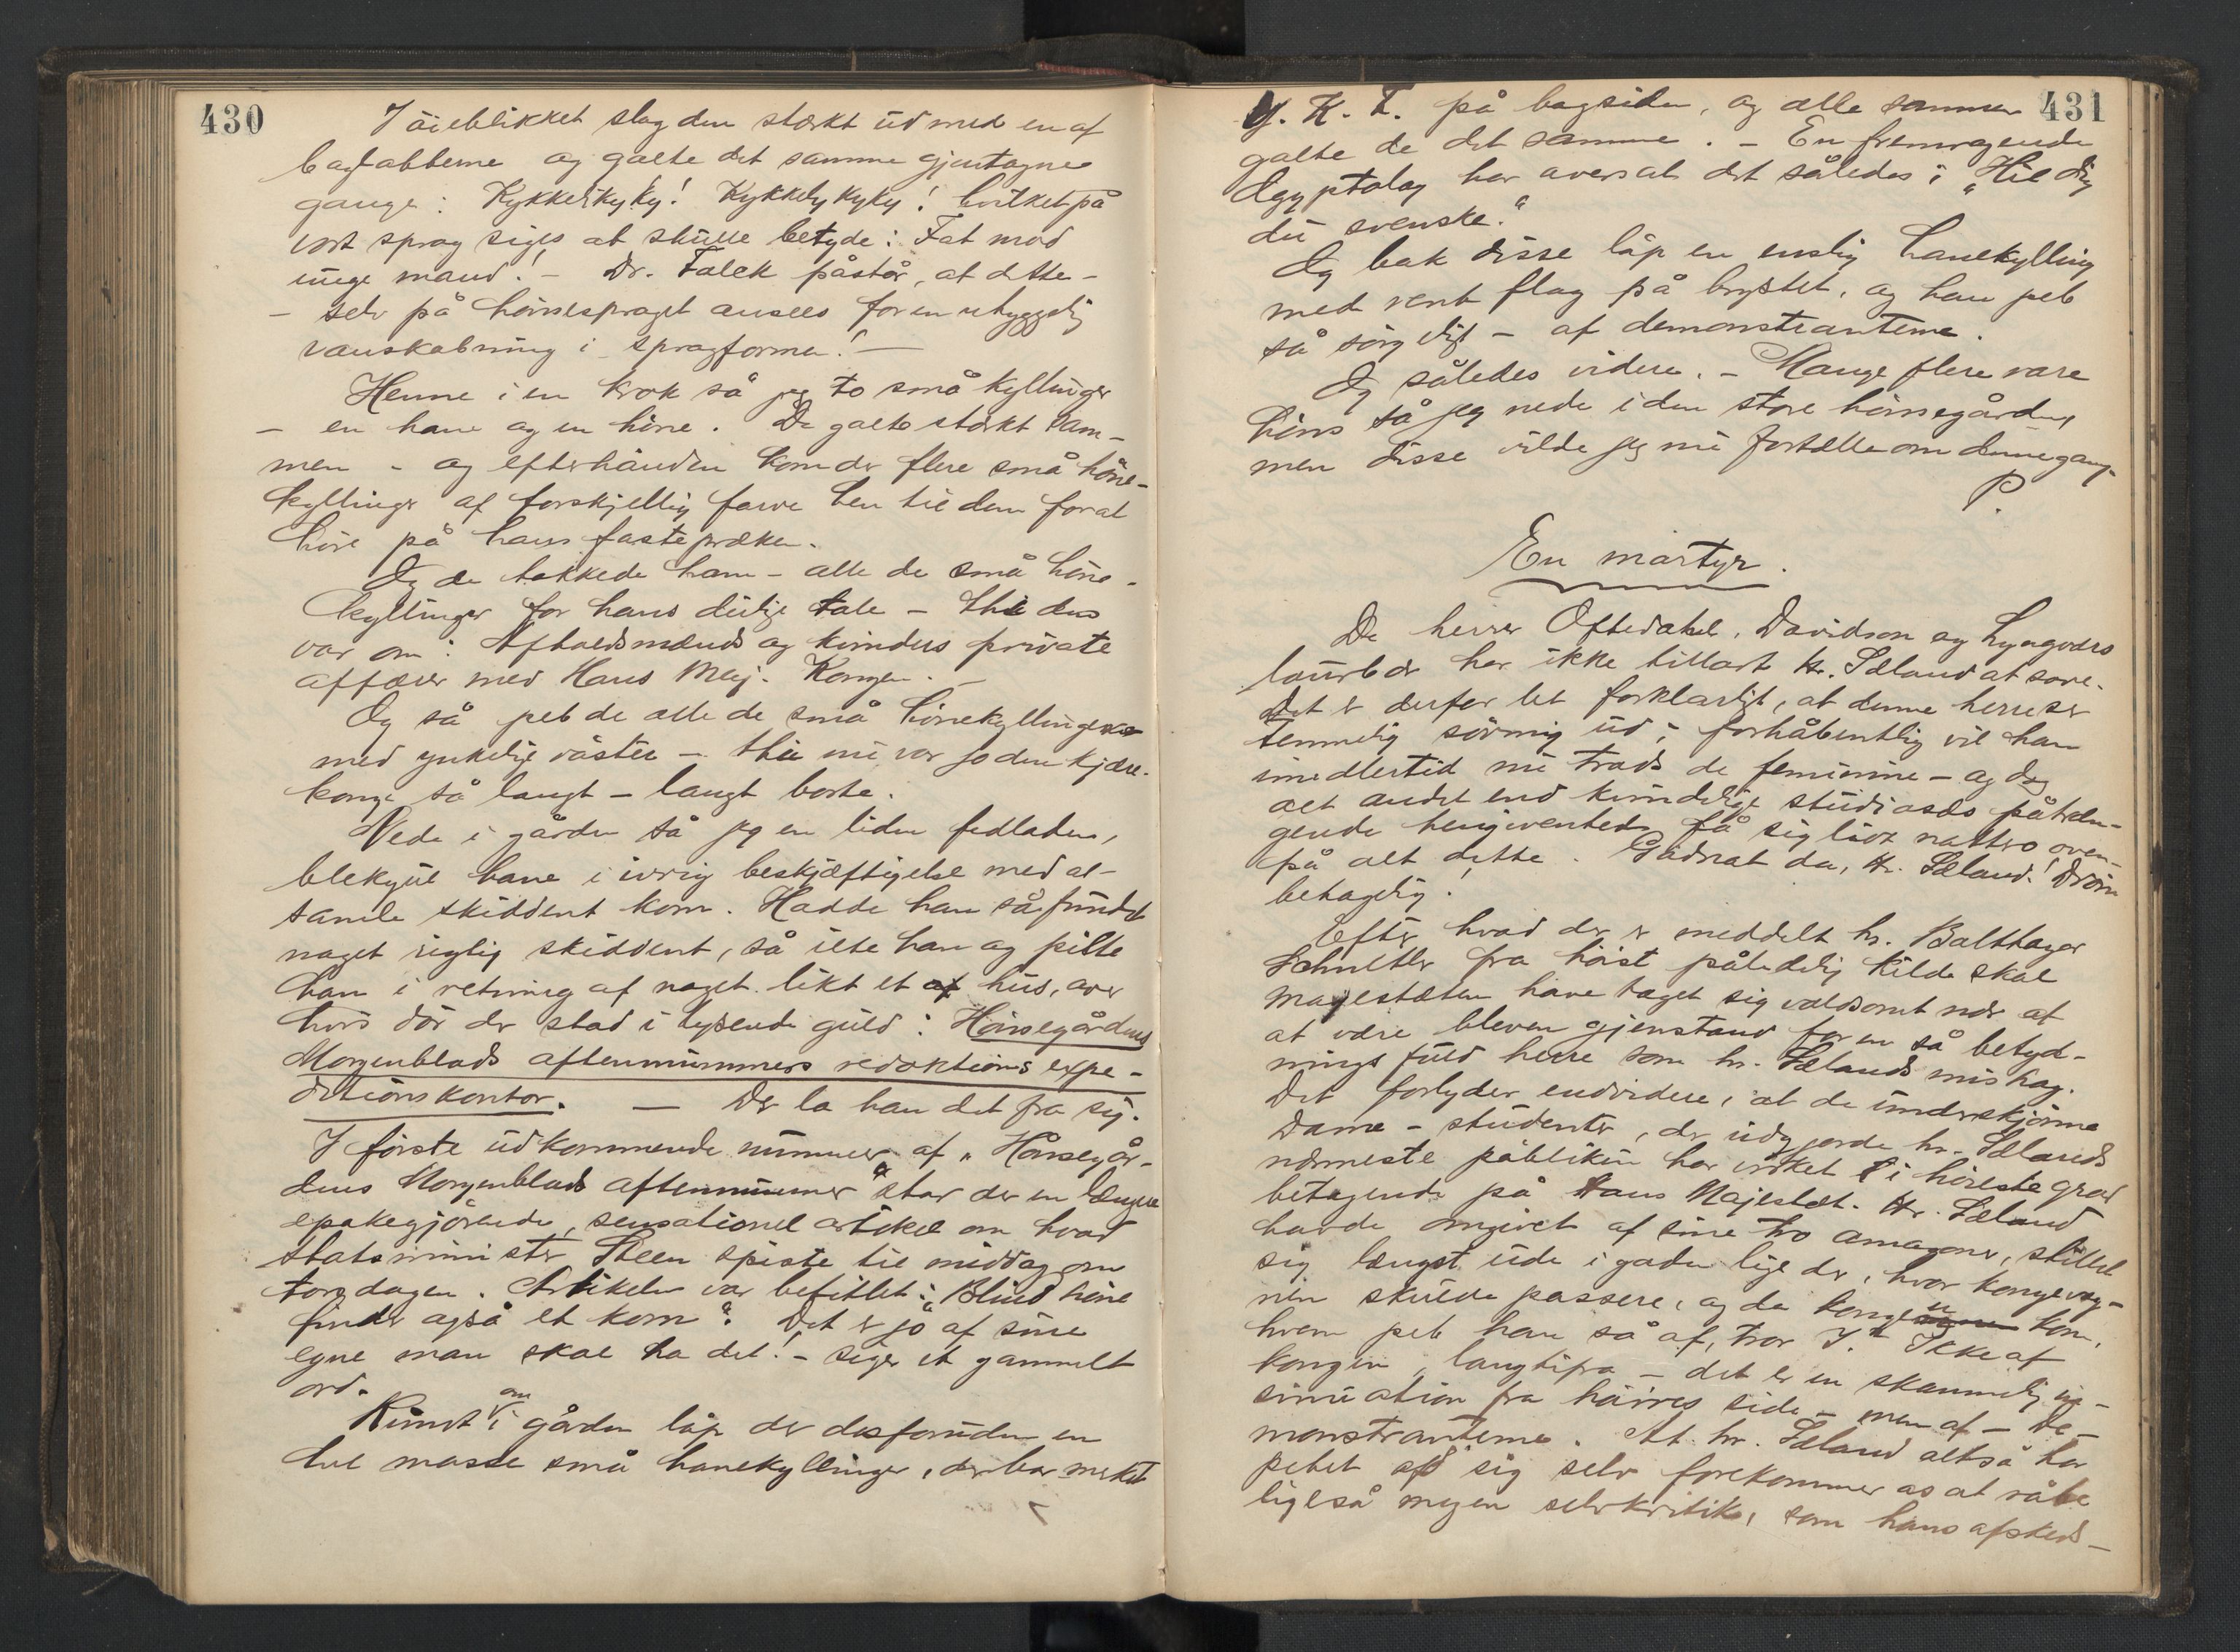 430
I øieblikket slog den stærkt ud med en af
baglabberne og galte det samme gjentagne
gange: Kykkelikyky! Kykkelykyky! hvilket på
vort sprog siges at skulle betyde: Fat mod
unge mand! – Dr. Falck påstår, at dette –
– selv på hønsesproget ansees for en uhyggelig
vanskabning i sprogformen! –
Henne i en krok så jeg to små kyllinger
– en hane og en høne. De galte stærkt sam-
men – og efterhånden kom der flere små høne-
kyllinger af forskjellig farve hen til dem forat
høre på hans fastepræken.
Og de takkede ham – alle de små høne-
kyllinger for hans deilige tale – thi den
var om: Afholdsmænds og kvinders private
affærer med Hans Maj. Kongen. –
Og så peb de alle de små hønekyllingerne
med ynkelige røster – thi nu var jo den kjære
konge så langt – langt borte.
Nede i gården så jeg en liden fedladen,
blekgul hane i ivrig beskjæftigelse med at
samle skiddent korn. Hadde han så fundet
noget rigtig skiddent, så ilte han og pilte
han i retning af noget likt et hus, over
hvis dør der stod i lysende guld: Hønsegårdens
Morgenblads aftennummers redaktions expe-
ditionskontor. — Der la han det fra sig.
I første udkommende nummer af "Hønsegår-
dens Morgenblads aftennummer" står der en længere
epokegjørende, sensationel artikel om hvad
statsminister Steen spiste til middag om
torsdagen. Artikelen var betitlet: "Blind høne
finder også et korn". Det er jo af sine
egne man skal ha det! – siger et gammelt
ord.
Rundt om i gården løp der desforuden en
hel masse små hanekyllinger, der bar merket
431
Y. K. F. på bagsiden, og alle sammen
galte de det samme. – En fremragende
Ægyptolog har oversat det således: "Hil dig
du svenske."
Og bak disse løp en enslig hanekylling
med rent flag på brystet, og han peb
så sørgeligt – af demonstranterne.
Og således videre. – Mange flere rare
høns så jeg nede i den store hønsegården,
men disse vilde jeg nu fortælle om denne gang.
P.
En martyr.
De herrer Oftedahls, Davidson og Lyngværs
laurbær har ikke tilladt hr. Sæland at sove.
Det er derfor let forklarligt, at denne herre ser
temmelig søvnig ud; forhåbentlig vil han
imedlertid nu trods de feminine – og dog
alt andet end kvindelige studiosæs påtræn-
gende hengivenhed få sig liden nattero oven-
på alt dette. Godnat da, hr. Sæland! Drøm
behagelig!
Efter hvad der er meddelt hr. Balthazar
Schnitler fra høist pålidelig kilde skal
majestæten have taget sig voldsomt nær af
at være bleven gjenstand for en så betyd-
ningsfuld herre som hr. Sælands mishag.
Det forlyder endvidere, at de underskjønne
dame-studenter, der udgjorde hr. Sælands
nærmeste publikum har virket i høieste grad
betagende på Hans Majestæt. Hr. Sæland
havde omgivet af sine tro amazoner, stillet
sig længst ude i gaden lige der, hvor kongevog-
nen skulde passere, og da kongen kom,
hvem peb han så af, tror I? Ikke af
kongen, langtifra – det er en skammelig in-
sinuation fra høires side – men af – De-
monstranterne. At hr. Sæland altså har
pebet af sig selv forekommer os at råbe
ligeså megen selvkritik, som hans afskeds-